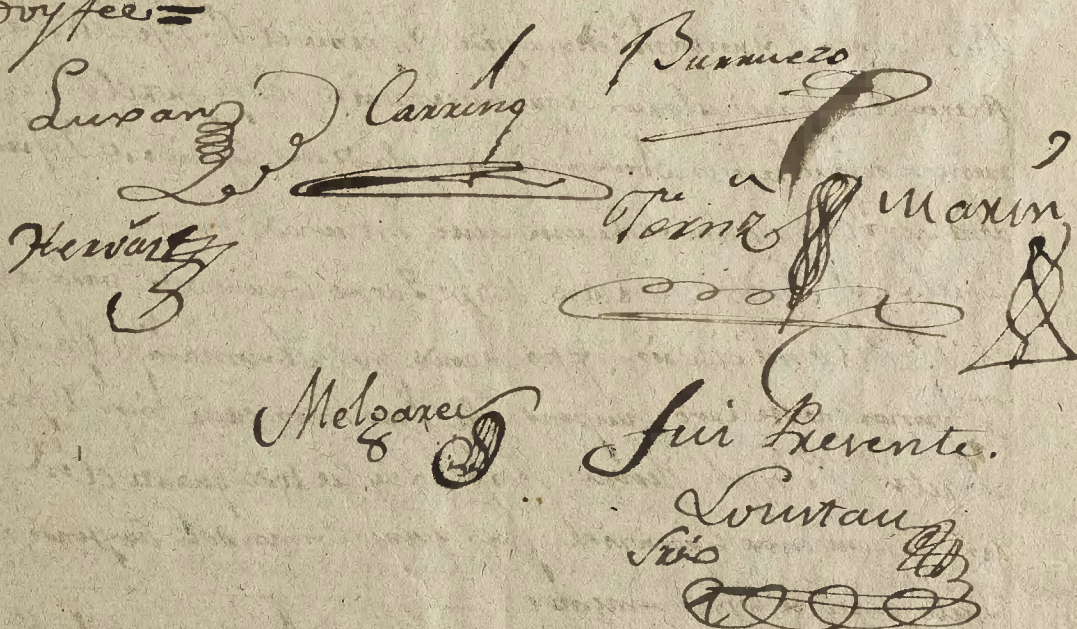 doy fee=
Luxan Carring Burruezo
Hervás Fernz Marin
Melgarex fui Presente.
Loustau
Srio